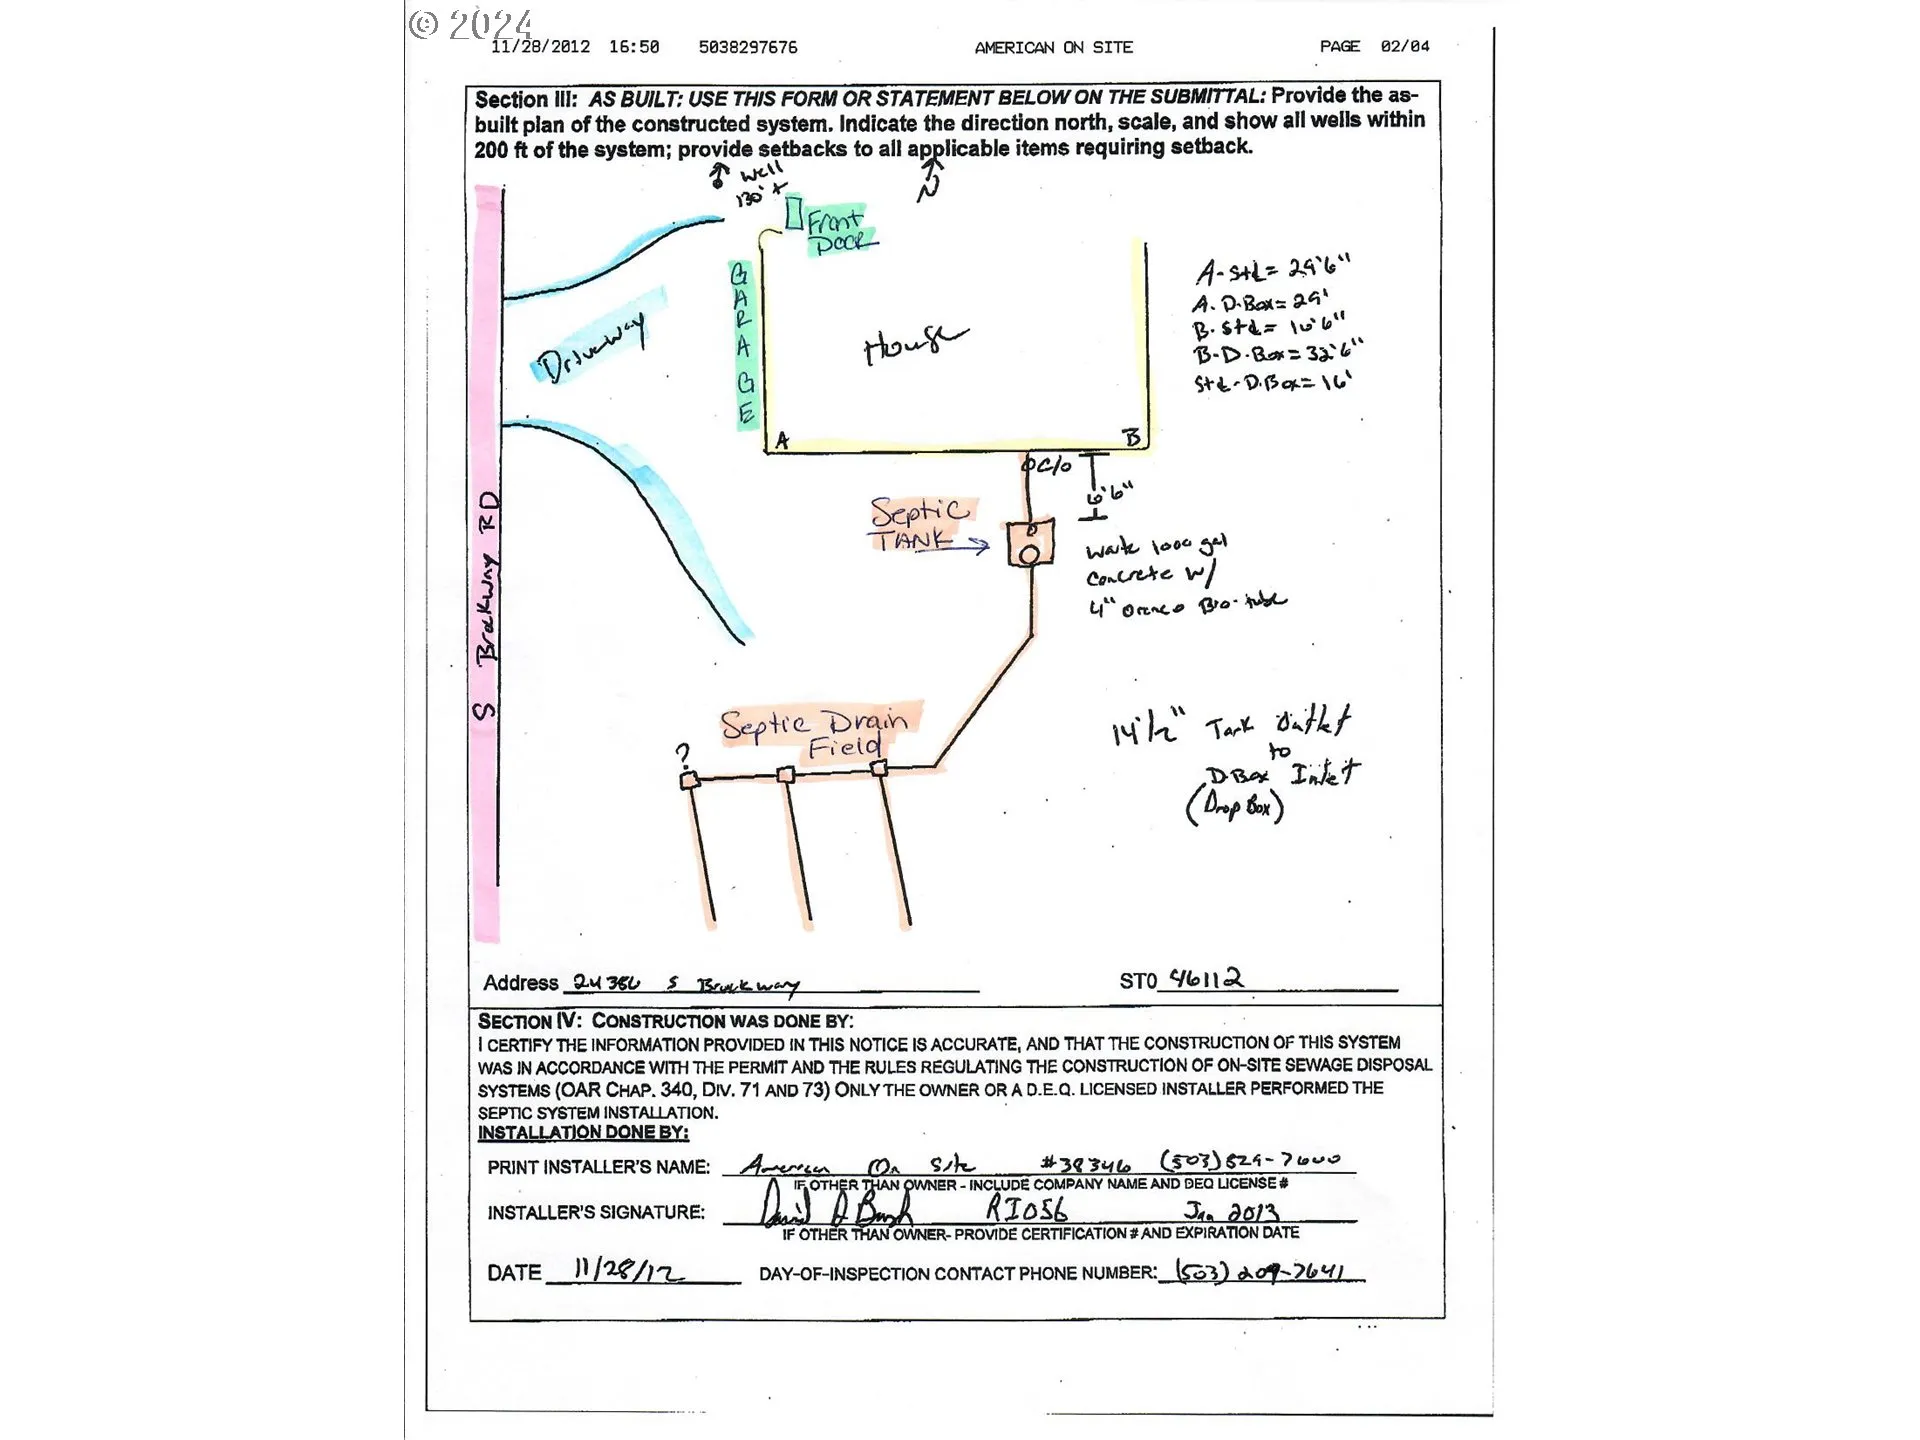 © 2024
11/28/2012 16:50 5038297676 AMERICAN ON SITE PAGE 02/04
Section III: AS BUILT: USE THIS FORM OR STATEMENT BELOW ON THE SUBMITTAL: Provide the as-
built plan of the constructed system. Indicate the direction north, scale, and show all wells within
200 ft of the system; provide setbacks to all applicable items requiring setback.
Well
130'+
N
Front
Door
GARAGE
House
Driveway
A
B
A-Stl= 29'6"
A. D.Box= 29'
B. Stl= 16'6"
B-D.Box= 32'6"
Stl-D.Box= 16'
C/O
6'6"
Septic
TANK
1000 gal
Concrete w/
4" Orenco Bio-tube
S Brockway RD
14 1/2" Tank Outlet
to
D-Box Inlet
(Drop Box)
Septic Drain
Field
?
Address 24386 S Brockway
ST0 46112
SECTION IV: CONSTRUCTION WAS DONE BY:
I CERTIFY THE INFORMATION PROVIDED IN THIS NOTICE IS ACCURATE, AND THAT THE CONSTRUCTION OF THIS SYSTEM
WAS IN ACCORDANCE WITH THE PERMIT AND THE RULES REGULATING THE CONSTRUCTION OF ON-SITE SEWAGE DISPOSAL
SYSTEMS (OAR CHAP. 340, DIV. 71 AND 73) ONLY THE OWNER OR A D.E.Q. LICENSED INSTALLER PERFORMED THE
SEPTIC SYSTEM INSTALLATION.
INSTALLATION DONE BY:
PRINT INSTALLER'S NAME: American On Site #38346 (503) 829-7600
IF OTHER THAN OWNER - INCLUDE COMPANY NAME AND DEQ LICENSE #
INSTALLER'S SIGNATURE: RI056 Jan 2013
IF OTHER THAN OWNER- PROVIDE CERTIFICATION # AND EXPIRATION DATE
DATE 11/28/12 DAY-OF-INSPECTION CONTACT PHONE NUMBER: (503) 209-7641